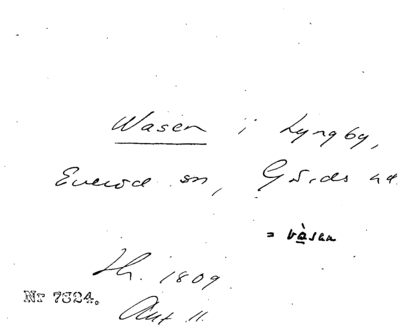 Wasen i Lyngby,
Everöd sn, Gärds hd.
= vàsen
Lh. 1809
Nr 7324.
Akt 11.